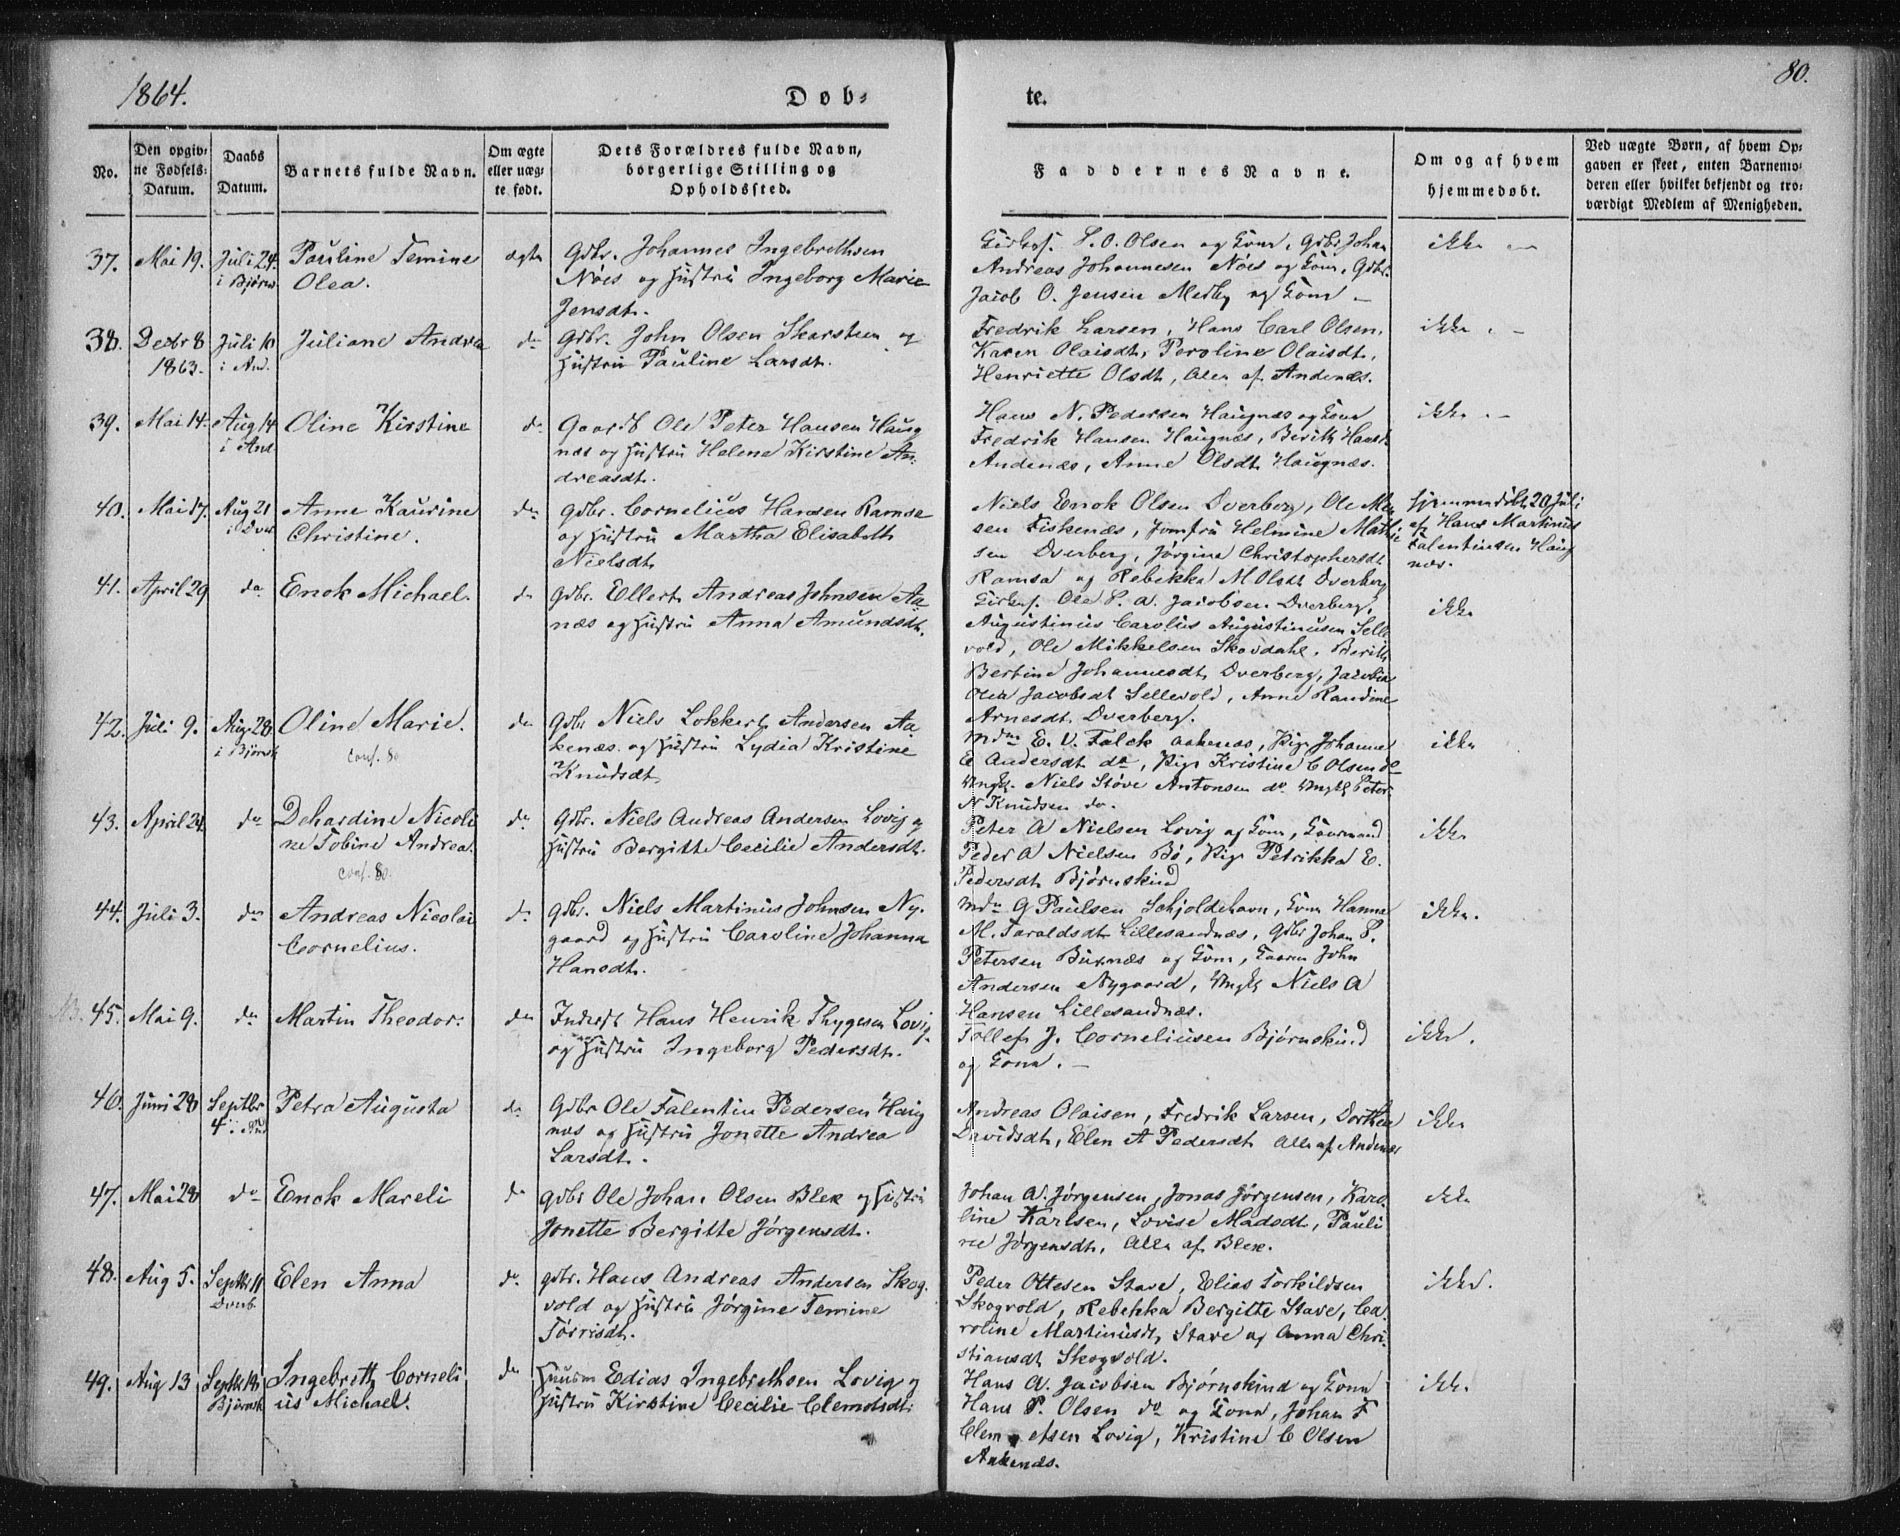 1864.
Døb-
te.
80.
No.
Den opgiv-
ne Fødsels-
Datum.
Daabs
Datum.
Barnets fulde Navn.
Om ægte
eller uæg-
te født.
Dets Forældres fulde Navn,
borgerlige Stilling og
Opholdssted.
Faddernes Navne.
Om og af hvem
hjemmedøbt.
Ved uægte Børn, af hvem Op-
gaven er skeet, enten Barnemo-
deren eller hvilket bekjendt og tro-
værdigt Medlem af Menigheden.
37. Mai 19. Juli 24. Pauline Temine ægte Gdbr. Johannes Ingebrethsen
i Bjørns Olea. Nøis og Hustru Ingeborg Marie
Jensdt.
Kirkes. S. O. Olsen og Kone, Gdbr Johan
Andreas Johannesen Nøis og Kone, Gdbr.
Jacob O. Jensen Medby og Kone –
ikke –
38. Decbr 8 Juli 10 Juliane Andrea do Gdbr. John Olsen Skarsteen og
1863. i And. Hustru Pauline Larsdt.
Fredrik Larsen, Hans Carl Olsen,
Karen Olaisdt, Peroline Olaisdt,
Henriette Olsdt, Alle af Andenæs.
ikke. –
39. Mai 14. Aug 14 Oline Kirstine do Ole Peter Hansen Haug
i And næs og Hustru Helene Kirstine An-
dreasdt.
Hans N. Pedersen Haugnæs og Kone
Fredrik Hansen Haugnæs, Berith Hansd.
Andenæs, Anne Olsdt Haugnæs.
ikke. –
40. Mai 17. Aug 21 Anne Kaurine do Gdbr. Cornelius Hansen Ramse
i Dver Christine. og Hustru Martha Elisabeth
Nielsdt
Niels Enok Olsen Dverberg, Ole
sen Fiskenæs, Jomfru Helmine Mathi
sen Dverberg, Jørgine Christophersdt
Ramsa og Rebekka M. Olsdt Dverberg
Hjemmedøbt 20 Juli
af Hans Martinus
Falentinsen Haug
næs.
41. April 29 do Enok Michael. do Gdbr. Ellert Andreas Johnsen Aa-
næs og Hustru Anna Amundsdt.
Kirkes. Ole P. A. Jacobsen Dverberg,
Augustinus Carolus Augustinusen Selle
vold, Ole Mikkelsen Skovdahl, Berith
Bertine Johannesdt Dverberg, Jacobine
Olea Jacobsdt Sellevold, Anne Randine
Arnesdt. Dverberg.
ikke
42. Juli 9. Aug 28 Oline Marie. do Gdbr Niels Lokkert Andersen Aa-
i Bjørnsk Conf. 80 kenæs og Hustru Lydia Kristine
Knudsdt
Mdme E. V. Falck Aakenæs, Pige Johanna
E Andersdt do, Pige Kristine C Olsen do
Ungk. Niels Støve Antonsen do Ungk Peter
N Knudsen do.
ikke
43. April 24. do Dehardine Nicoli do Gdbr. Niels Andreas Andersen Lovig og
ne Tobine Andrea. Hustru Bergitte Cecilie Andersdt.
Conf. 80.
Peter A Nielsen Lovig og Kone, Gaarmand
Peder A Nielsen Bø, Pige Petrikka E.
Pedersdt Bjørnskind
ikke
44. Juli 3. do Andreas Nicolai do Gdbr. Niels Martinus Johnsen Ny-
Cornelius. gaard og Hustru Caroline Johanna
Hansdt.
Mdm G Paulsen Schjoldehavn, Kone Hanna
M. Taraldsdt Lillesandnæs, Gdbr Johan P.
Petersen Buknæs og Kone, John
Andersen Nygaard, Ungk Niels A
Hansen Lillesandnæs.
ikke.
NB. 45. Mai 9. do Martin Theodor. do Inderst Hans Henrik Thygesen Lovig
og Hustru Ingeborg Pedersdt.
Tollef J. Corneliusen Bjørnskind
og Kone. –
ikke.
46. Juni 28 Septbr Petra Augusta do Gdbr Ole Falentin Pedersen Haug
4 i And næs og Hustru Jonette Andrea
Larsdt.
Andreas Olaisen, Fredrik Larsen, Dorthea
Davidsdt, Elen A Pedersdt Alle af Andenæs
ikke
47. Mai 28 do Enok Mareli do Gdbr Ole Johan Olsen Blek og Hustru
Jonette Bergitte Jørgensdt.
Johan A. Jørgensen, Jonas Jørgensen, Karo-
line Karlsen, Lovise Madsdt, Pauli
ne Jørgensdt, Alle af Blek.
ikke
48. Aug 5. Septbr 11 Elen Anna do Gdbr. Hans Andreas Andersen Skog-
Dverb vold og Hustru Jørgine Temine
Torrisdt.
Peder Ottesen Stave, Elias Torkildsen
Skogvold, Rebekka Bergitte Stave, Ca
roline Martinusdt, Stave og Anna Chri-
stiansdt Skogvold.
ikke.
49. Aug 13 Septbr 18 Ingebrith Corneli do Huusm Edias Ingebrethsen Lovig og
Bjørnsk us Michael. Hustru Kirstine Cecilie Clemetsdt.
Hans A. Jacobsen Bjørnskind og Kone
Hans P. Olsen do og Kone, Johan F
Clemetsen Lovig, Kristine C Olsen
Aakenæs.
ikke.